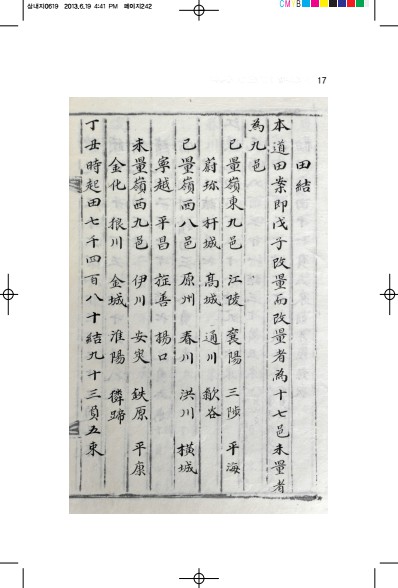 삼내지0619 2013.6.19 4:41 PM 페이지242
CM B
17
田結
本道田案即戊子改量而改量者為十七邑未量者
為九邑
已量嶺東九邑 江陵 襄陽 三陟 平海
蔚珍 杆城 高城 通川 歙谷
已量嶺西八邑 原州 春川 洪川 橫城
寧越 平昌 旌善 楊口
未量嶺西九邑 伊川 安峽 鉄原 平康
金化 狼川 金城 淮陽 獜蹄
丁丑時起田七千四百八十結九十三負五束